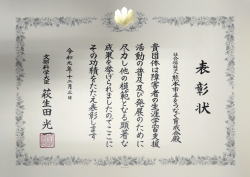 表彰状
社会福祉法人熊本市手をつなぐ育成会殿
貴団体は障害者の生涯学習支援
活動の普及及び発展のために
尽力し他の模範となる顕著な
成果を挙げられましたのでここに
その功績をたたえ表彰します
令和元年十二月三日
文部科学大臣 萩生田光一